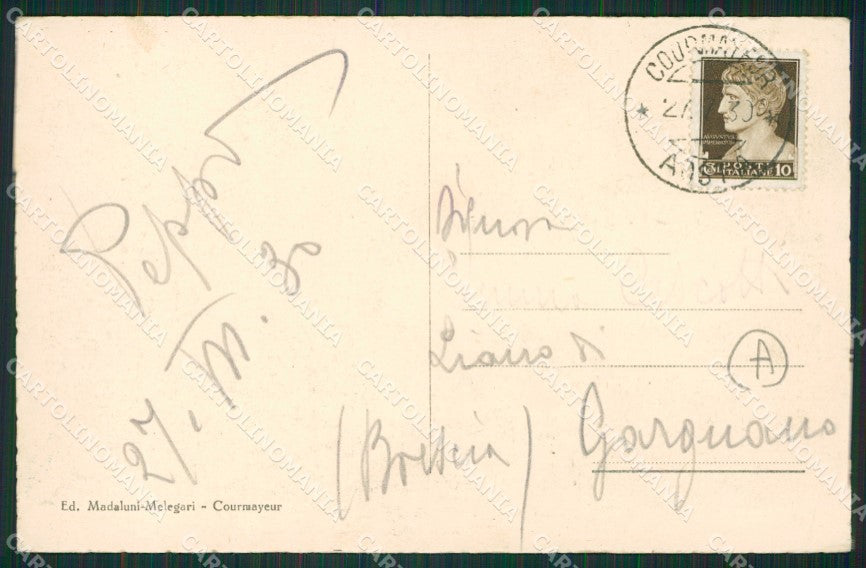 COURMAYEUR
AOSTA
POSTE
ITALIANE 10
Peppo
27. VII. 30
Signora
Liano di
A
Gargnano
(Brescia)
Ed. Madaluni-Melegari - Courmayeur
CARTOLINOMANIA